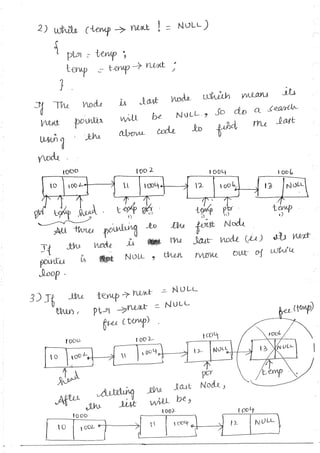 2) while (temp → next ! = NULL)
{
ptr = temp ;
temp = temp → next ;
}
If The node is last node which means its
next pointer will be NULL, So do a search
using the above code to find the last
node.
1000 1002 1004 1006
10 1002 11 1004 12 1006 13 NULL
ptr temp head temp ptr temp ptr temp
All three pointing to the first Node
If the node is the last node (ie) its next
pointer is NULL, then move out of while
loop.
3) If the temp → next = NULL
then, ptr → next = NULL
free (temp)
free (temp)
1000 1002 1004 1006
10 1002 11 1004 12 NULL 13 NULL
head ptr temp
After deleting the last Node,
the list will be,
1000 1002 1004
10 1002 11 1004 12 NULL